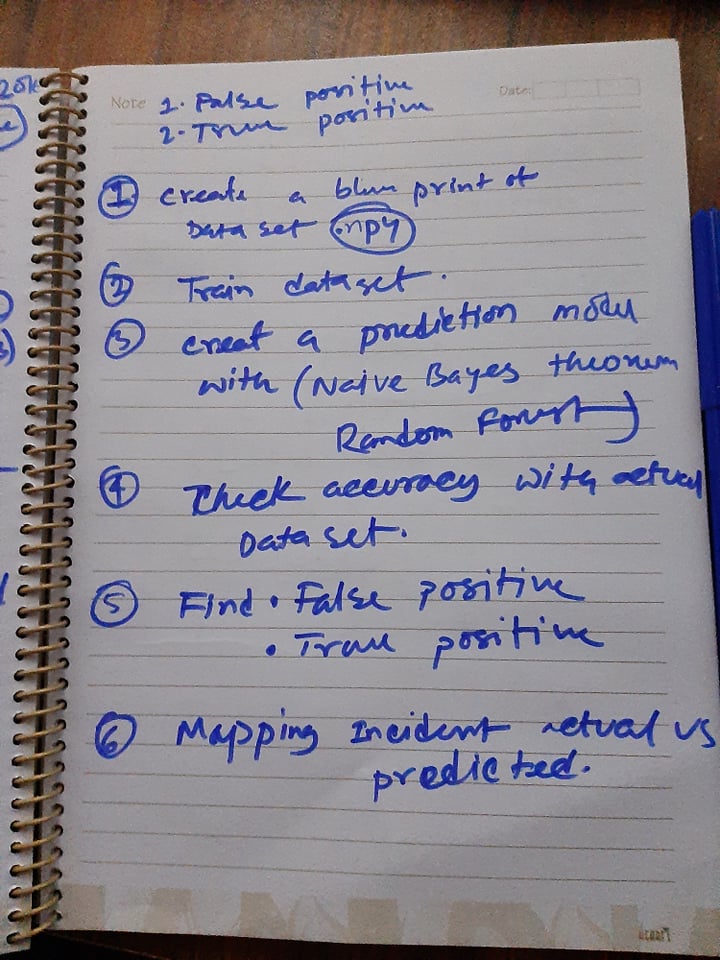 20k
Note 1. False positive
Date:
2. True positive
① create a blue print of
Data set .npy
② Train dataset.
③ creat a prediction model
with (Naive Bayes theorem
Random Forest)
④ Check accuracy with actual
Data set.
⑤ Find • False positive
• True positive
⑥ Mapping Incident actual vs
predicted.